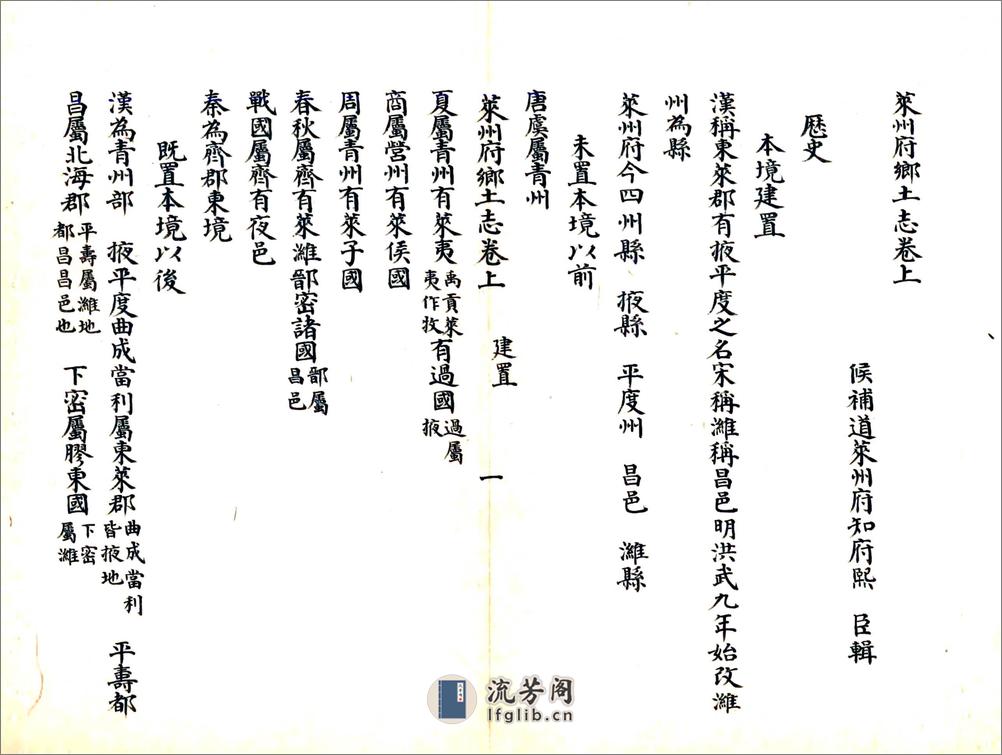 萊州府鄉土志卷上
候補道萊州府知府熙 臣輯
歷史
本境建置
漢稱東萊郡有掖平度之名宋稱濰稱昌邑明洪武九年始改濰
州為縣
萊州府今四州縣 掖縣 平度州 昌邑 濰縣
未置本境以前
唐虞屬青州
萊州府鄉土志卷上 建置 一
夏屬青州有萊夷禹貢萊夷作牧有過國過屬掖
商屬營州有萊侯國
周屬青州有萊子國
春秋屬齊有萊濰鄑密諸國鄑屬昌邑
戰國屬齊有夜邑
秦為齊郡東境
既置本境以後
漢為青州部 掖平度曲成當利屬東萊郡曲成當利皆掖地 平壽都
昌屬北海郡平壽屬濰地都昌昌邑也 下密屬膠東國下密屬濰
流芳阁
lfglib.cn